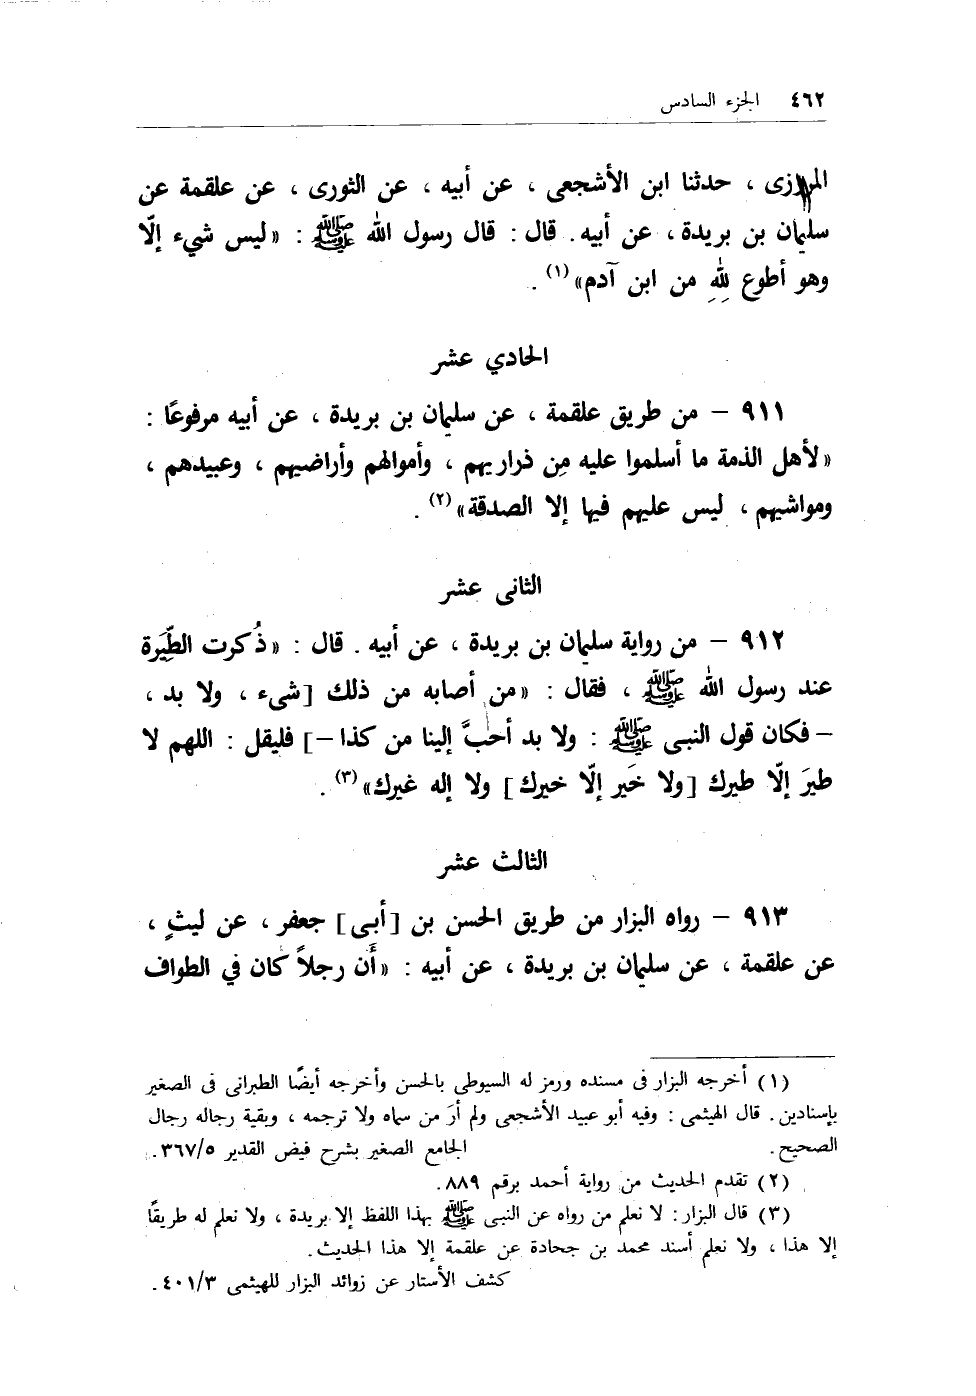 ٤٦٢ الجزء السادس
المروزى ، حدثنا ابن الأشجعى ، عن أبيه ، عن الثورى ، عن علقمة عن
سليمان بن بريدة ، عن أبيه . قال : قال رسول الله ﷺ : «ليس شيء إلّا
وهو أطوع للهِ من ابن آدم»(١) .
الحادي عشر
٩١١ – من طريق علقمة ، عن سليمان بن بريدة ، عن أبيه مرفوعًا :
«لأهل الذمة ما أسلموا عليه مِن ذراريهم ، وأموالهم وأراضيهم ، وعبيدهم ،
ومواشيهم ، ليس عليهم فيها إلا الصدقة»(٢) .
الثانى عشر
٩١٢ – من رواية سليمان بن بريدة ، عن أبيه . قال : «ذُكرت الطِّيَرة
عند رسول الله ﷺ ، فقال : «من أصابه من ذلك [شىء ، ولا بد ،
– فكان قول النبى ﷺ : ولا بد أحبَّ إلينا من كذا –] فليقل : اللهم لا
طيرَ إلّا طيرك [ولا خَير إلّا خيرك] ولا إله غيرك»(٣) .
الثالث عشر
٩١٣ – رواه البزار من طريق الحسن بن [أبى] جعفر ، عن ليثٍ ،
عن علقمة ، عن سليمان بن بريدة ، عن أبيه : «أَن رجلاً كان في الطواف
(١) أخرجه البزار فى مسنده ورمز له السيوطى بالحسن وأخرجه أيضًا الطبرانى فى الصغير
بإسنادين . قال الهيثمى : وفيه أبو عبيد الأشجعى ولم أرَ من سماه ولا ترجمه ، وبقية رجاله رجال
الصحيح . الجامع الصغير بشرح فيض القدير ٣٦٧/٥ .
(٢) تقدم الحديث من رواية أحمد برقم ٨٨٩ .
(٣) قال البزار : لا نعلم من رواه عن النبى ﷺ بهذا اللفظ إلا بريدة ، ولا نعلم له طريقًا
إلا هذا ، ولا نعلم أسند محمد بن جحادة عن علقمة إلا هذا الحديث .
كشف الأستار عن زوائد البزار للهيثمى ٤٠١/٣ .